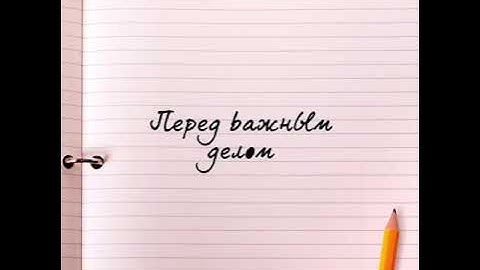 Перед важным
делом